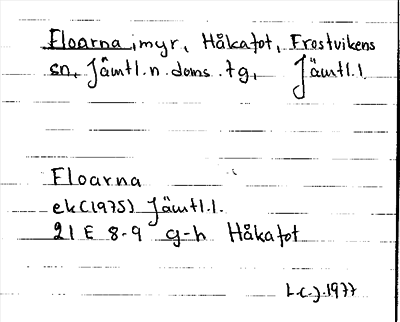 Floarna, myr, Håkafot, Frostvikens
sn, Jämtl. n. doms. tg, Jämtl. l.
Floarna
ek (1975) Jämtl. l.
21 E 8-9 g-h Håkafot
1977